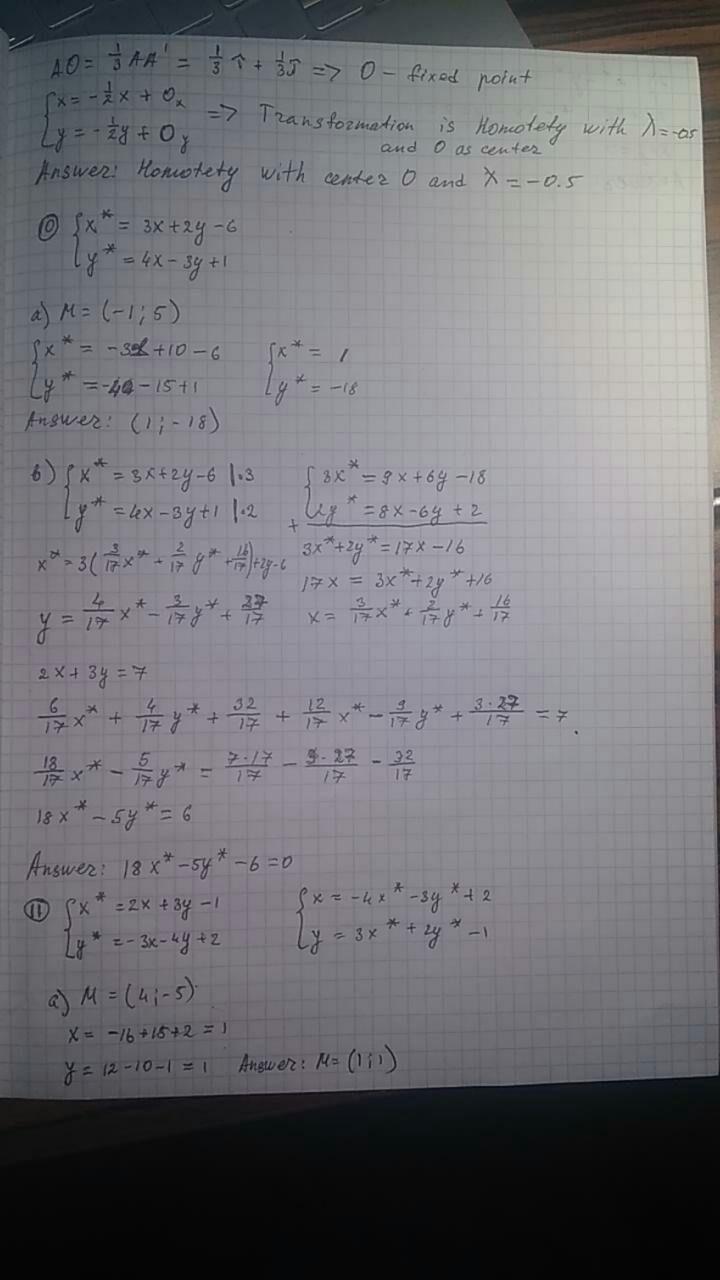 AO = 1/3 AA' = 1/3 i + 1/3 j => O - fixed point
{x = -1/2x + Ox
{y = -1/2y + Oy => Transformation is Homotety with λ=-0.5
and O as center
Answer: Homotety with center O and λ = -0.5
⑩ {x* = 3x+2y-6
{y* = 4x-3y+1
a) M = (-1; 5)
{x* = -3+10-6 {x* = 1
{y* = -4-15+1 {y* = -18
Answer: (1; -18)
b) {x* = 3x+2y-6 |·3 {3x* = 9x+6y-18
{y* = 4x-3y+1 |·2 + {2y* = 8x-6y+2
x* = 3(3/17x* + 2/17y* + 16/17)+2y-6 3x*+2y* = 17x-16
17x = 3x*+2y*+16
y = 4/17x* - 3/17y* + 27/17 x = 3/17x* + 2/17y* + 16/17
2x+3y = 7
6/17x* + 4/17y* + 32/17 + 12/17x* - 9/17y* + 3·27/17 = 7
18/17x* - 5/17y* = 7·17/17 - 3·27/17 - 32/17
18x* - 5y* = 6
Answer: 18x* - 5y* - 6 = 0
⑪ {x* = 2x+3y-1 {x = -4x*-3y*+2
{y* = -3x-4y+2 {y = 3x*+2y*-1
a) M = (4; -5)
x = -16+15+2 = 1
y = 12-10-1 = 1 Answer: M = (1; 1)